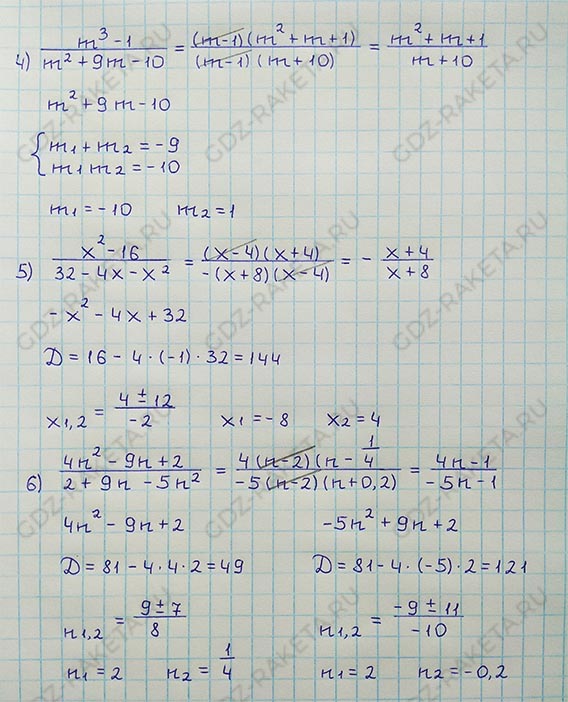 4) (m³ - 1)/(m² + 9m - 10) = ((m-1)(m² + m + 1))/((m-1)(m+10)) = (m² + m + 1)/(m + 10)
m² + 9m - 10
{ m1 + m2 = -9
m1 m2 = -10
m1 = -10 m2 = 1
5) (x² - 16)/(32 - 4x - x²) = ((x-4)(x+4))/(-(x+8)(x-4)) = - (x+4)/(x+8)
- x² - 4x + 32
D = 16 - 4 · (-1) · 32 = 144
x1,2 = (4 ± 12)/(-2) x1 = -8 x2 = 4
6) (4n² - 9n + 2)/(2 + 9n - 5n²) = (4(n-2)(n - 1/4)/(-5(n-2)(n+0,2)) = (4n-1)/(-5n-1)
4n² - 9n + 2 -5n² + 9n + 2
D = 81 - 4 · 4 · 2 = 49 D = 81 - 4 · (-5) · 2 = 121
n1,2 = (9 ± 7)/8 n1,2 = (-9 ± 11)/(-10)
n1 = 2 n2 = 1/4 n1 = 2 n2 = -0,2
GDZ-RAKETA.RU